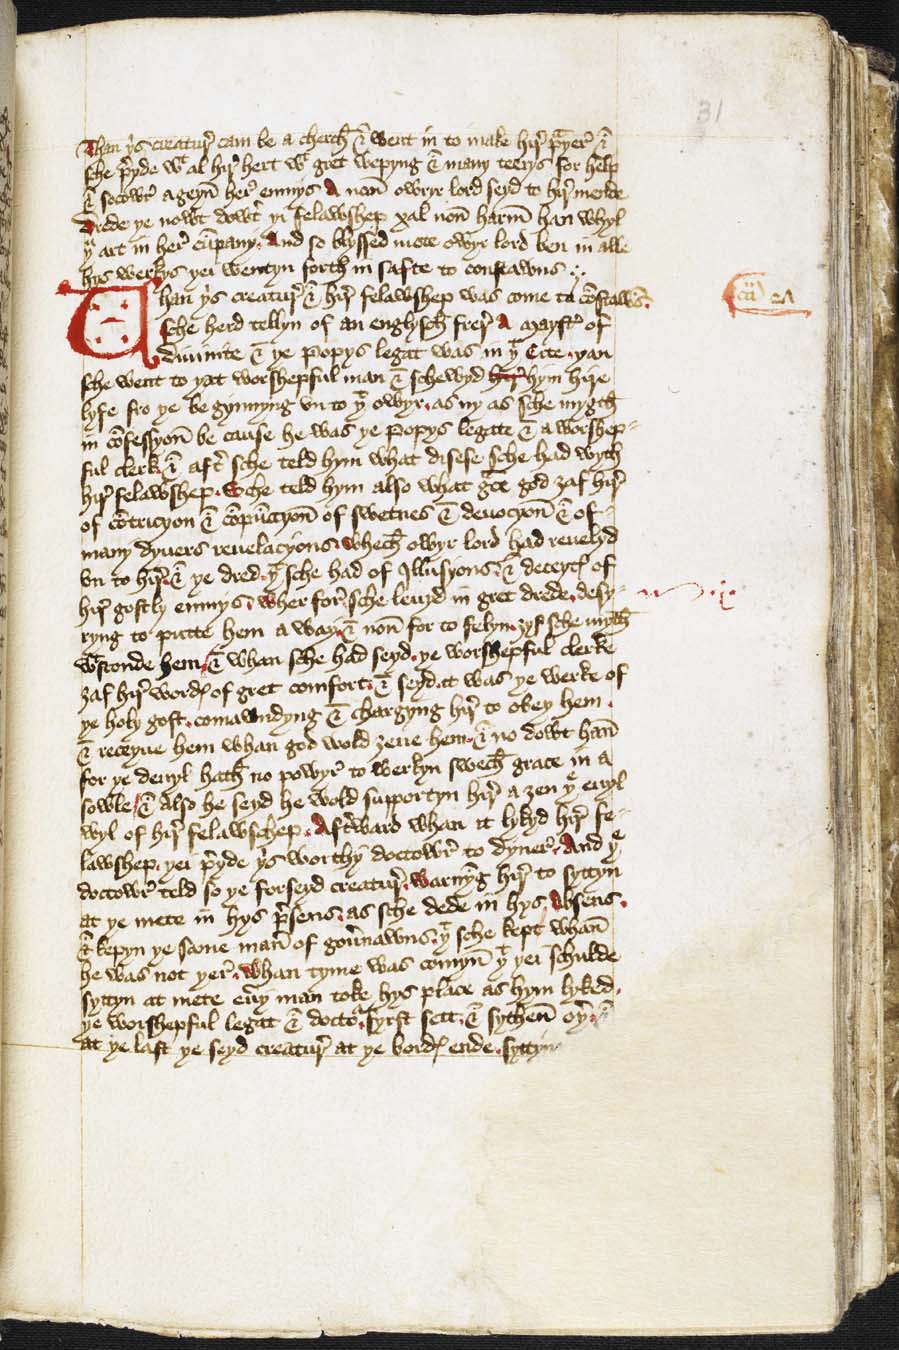 31
Than ys creatur cam be a cherch & went in to make hir prayer &
sche preyde wt al hir hert wt gret wepyng & many teerys for help
& socowr ageyn her enmys A non owyr lord seyd to hir mende
Drede ye nowt dowtr yi felawshep xal non harm han whyl
yu art in her cumpany. And so blyssed mote owyr lord ben in alle
hys werkys yei wentyn forth in safte to constawns
Whan ys creatur & hir felawshep was come to constawns.
sche herd tellyn of an englysch frer A mayster of
diuinite & ye popys legat was in yt Cite. yan
sche went to yat worshepful man & schewyd hir hym hire
lyfe fro ye begynnyng vn to yt owyr. as ny as sche mygth
in confessyon be cause he was ye popys legate & a worshep-
ful clerk. & aftr sche teld hym what disese sche had wyth
hir felawshep. Sche teld hym also what gce god zaf hir
of contricyon & compunccyon of swetnes & deuocyon & of
many dyuers reuelacyons. whech owyr lord had reuelyd
vn to hir. & ye dred yt sche had of Illusyons. & deceytys of
hir gostly enmys. wher for sche leuyd in gret drede. desy-
ryng to putte hem a way. & non for to felyn. zyf sche myth
wtstonde hem. & whan sche had seyd. ye worshepful clerke
zaf hir wordys of gret comfort. & seyd it was ye werke of
ye holy gost. comawndyng & chargyng hir to obey hem.
& receyue hem whan god wold zeue hem. & no dowt han
for ye deuyl hath no powyr to werkyn swech grace in a
sowle. & also he seyd he wold supportyn hir a zen ye euyl
wyl of hir felawschep. Aftrward whan it lykyd hir fe-
lawshep. yei preyde ys worthy doctowr to dyner. And ye
doctowr teld so ye forseyd creatur. warnyng hir to syttyn
at ye mete in hys presens. as sche dede in hys absens.
& kepyn ye same maner of gouernawns. yt sche kept whan
he was not yer. whan tyme was comyn yt yei schulde
syttyn at mete euery man toke hys place as hym lyked.
ye worshepful legat & doctor fyrst sett. & sythen oyer. &
at ye last ye seyd creatur at ye bordys ende. syttyng